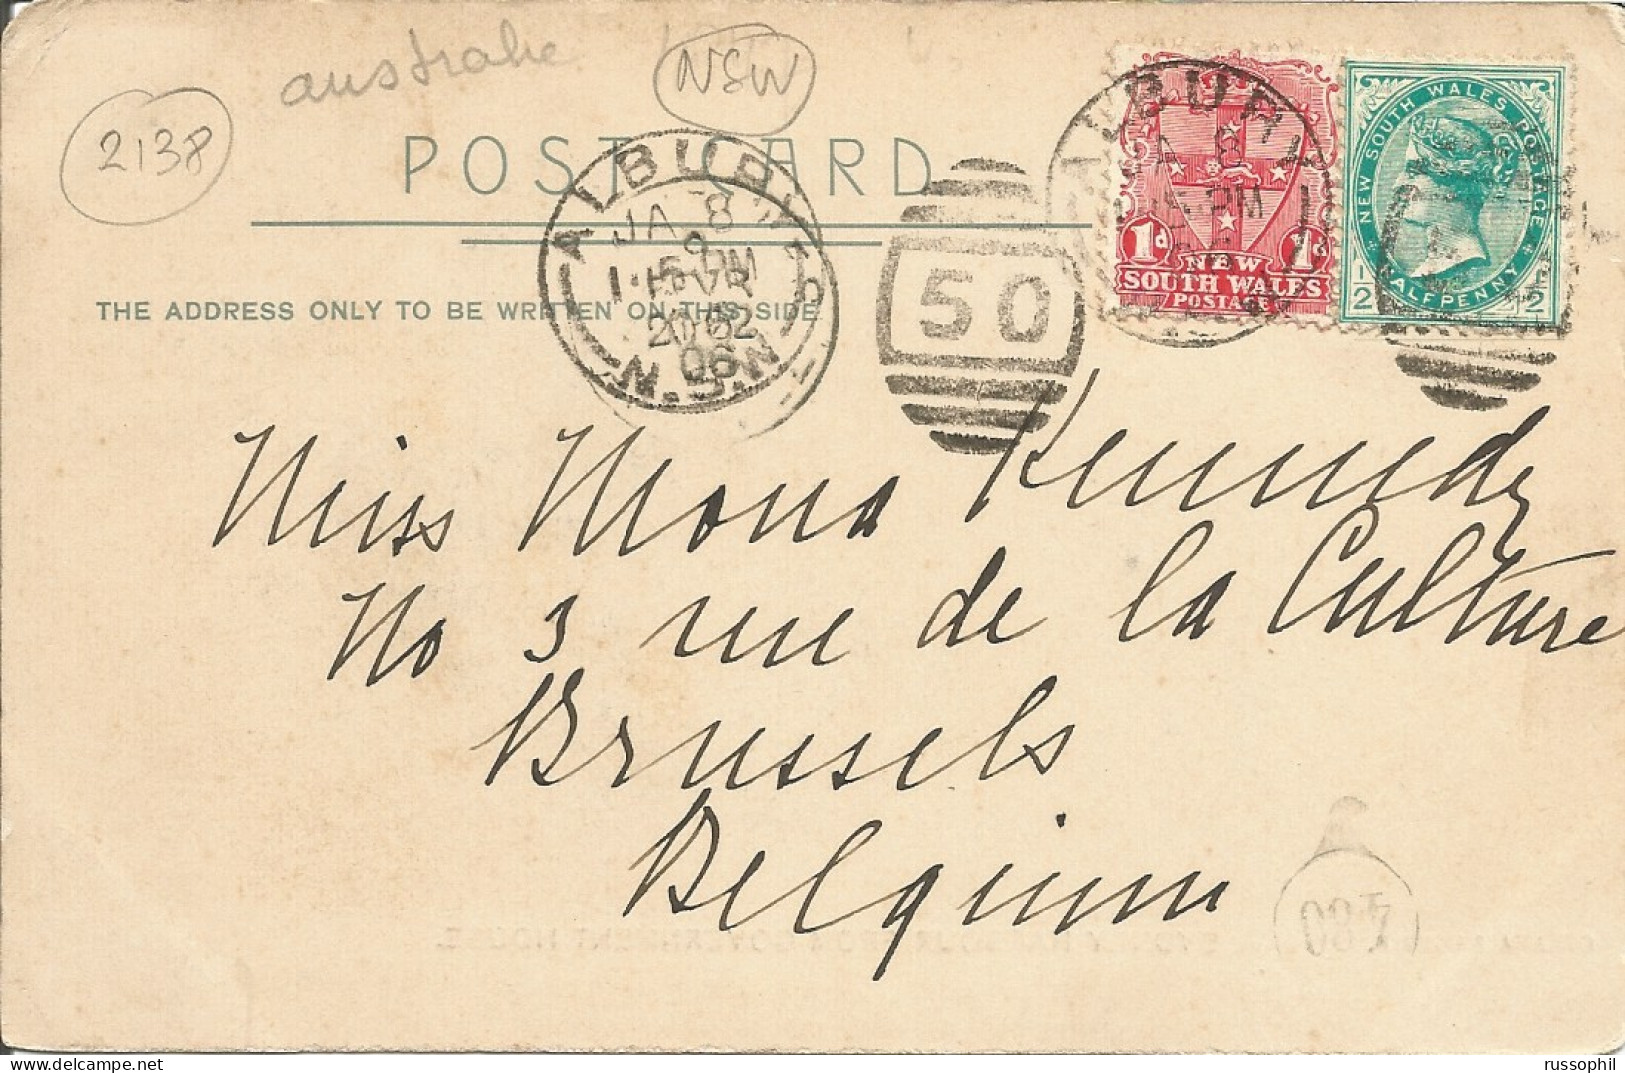 australie
NSW
2138
POST CARD
THE ADDRESS ONLY TO BE WRITTEN ON THIS SIDE
ALBURY
JA 8
N.S.W
50
ALBURY
JA 8
PM
1d 1d
NEW
SOUTH WALES
POSTAGE
NEW SOUTH WALES POSTAGE
1/2 HALFPENNY 1/2
Miss Mona Kennedy
No 3 rue de la Culture
Brussels
Belgium
GOVERNMENT HOUSE.
russophil